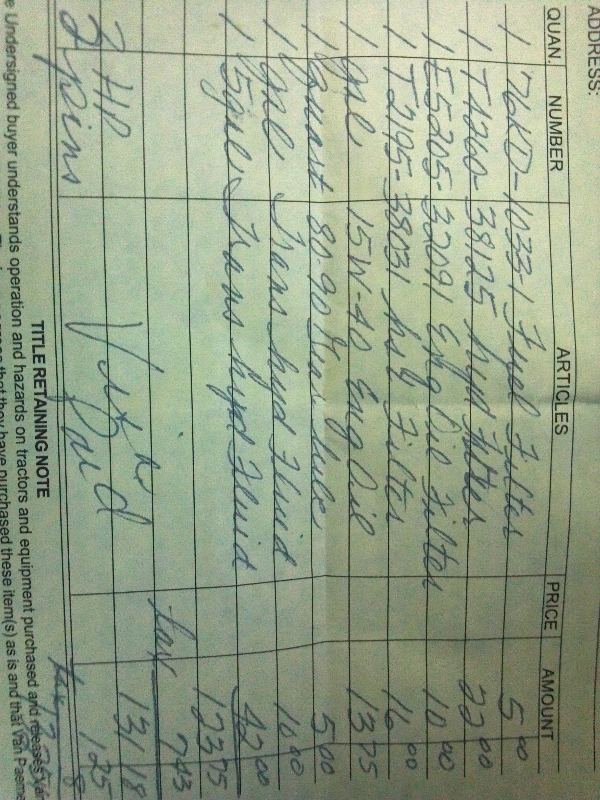 ADDRESS:
QUAN. NUMBER ARTICLES PRICE AMOUNT
1 Fuel Filter 5 00
1 T4260-38125 hyd Filter 22 00
1 E5205-32091 Eng Oil Filter 10 00
1 T2195-38031 Filter 16 00
1 gal 15W-40 Eng Oil 13 75
1 Quart 80-90 Gear Lube 5 00
1 gal Trans hyd Fluid 10 00
1 5 gal Trans hyd Fluid 42 00
123 75
tax 7 43
131 18
2 HP pins Paid 1 25
TITLE RETAINING NOTE
e Undersigned buyer understands operation and hazards on tractors and equipment purchased and releases Van
they have purchased these item(s) as is and that Van Paeme